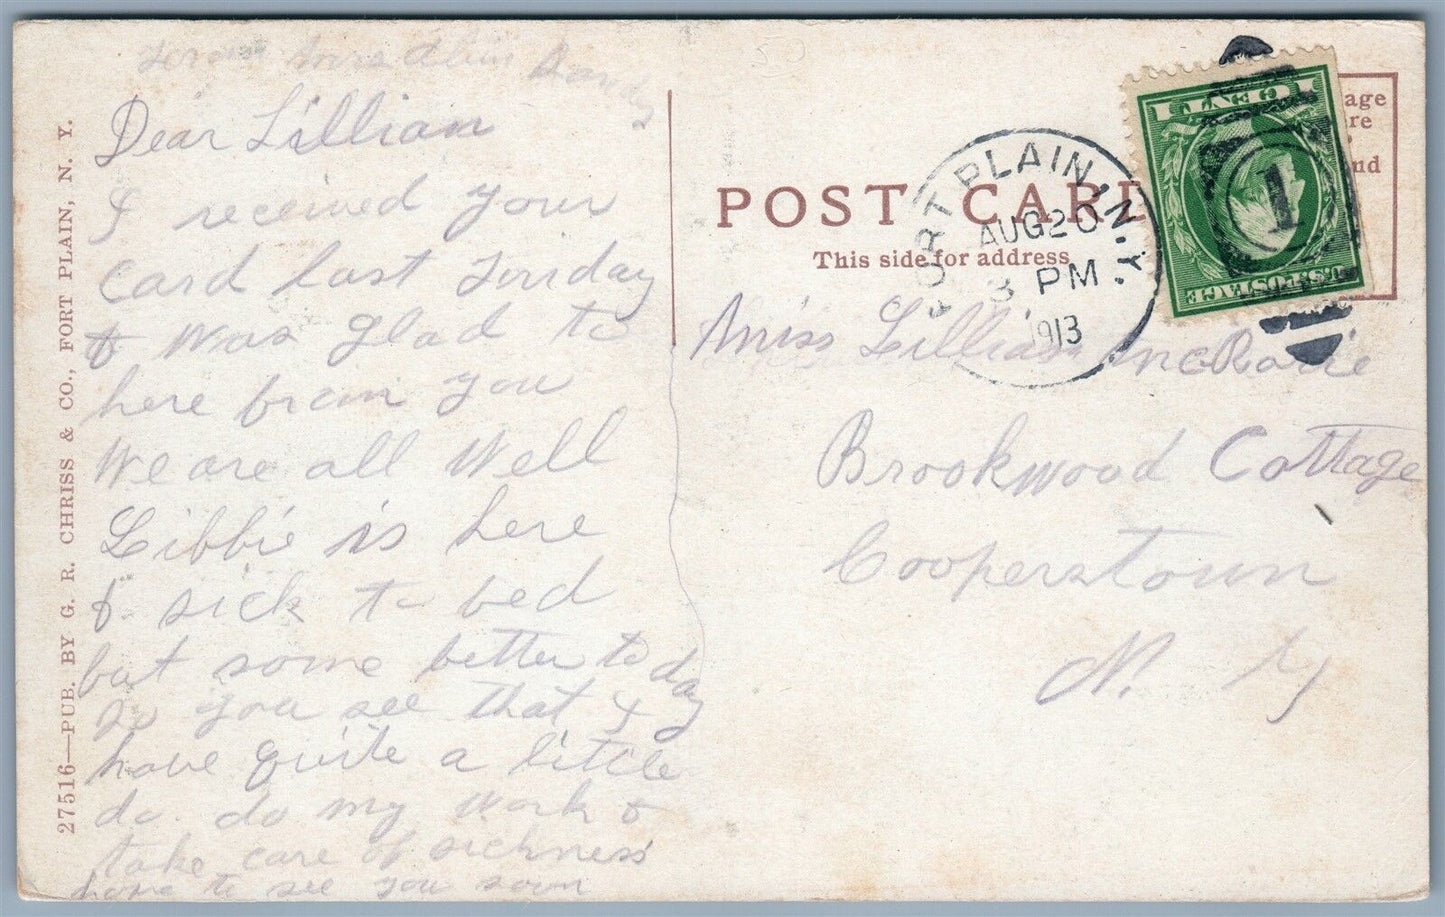 from Mrs
Dear Lillian
I received your
card last Friday
& was glad to
here from you
We are all well
Libbie is here
& sick to bed
but some better to day
So you see that I
have quite a little
do. do my work &
take care of sickness
hope to see you soon
27516—PUB. BY G. R. CHRISS & CO., FORT PLAIN, N. Y.
50
POST CARD
This side for address
FORT PLAIN, N.Y.
AUG 20
3 PM
1913
1
ONE CENT 1
U.S. POSTAGE
age
re
nd
Miss Lillian
Brookwood Cottage
Cooperstown
N. Y